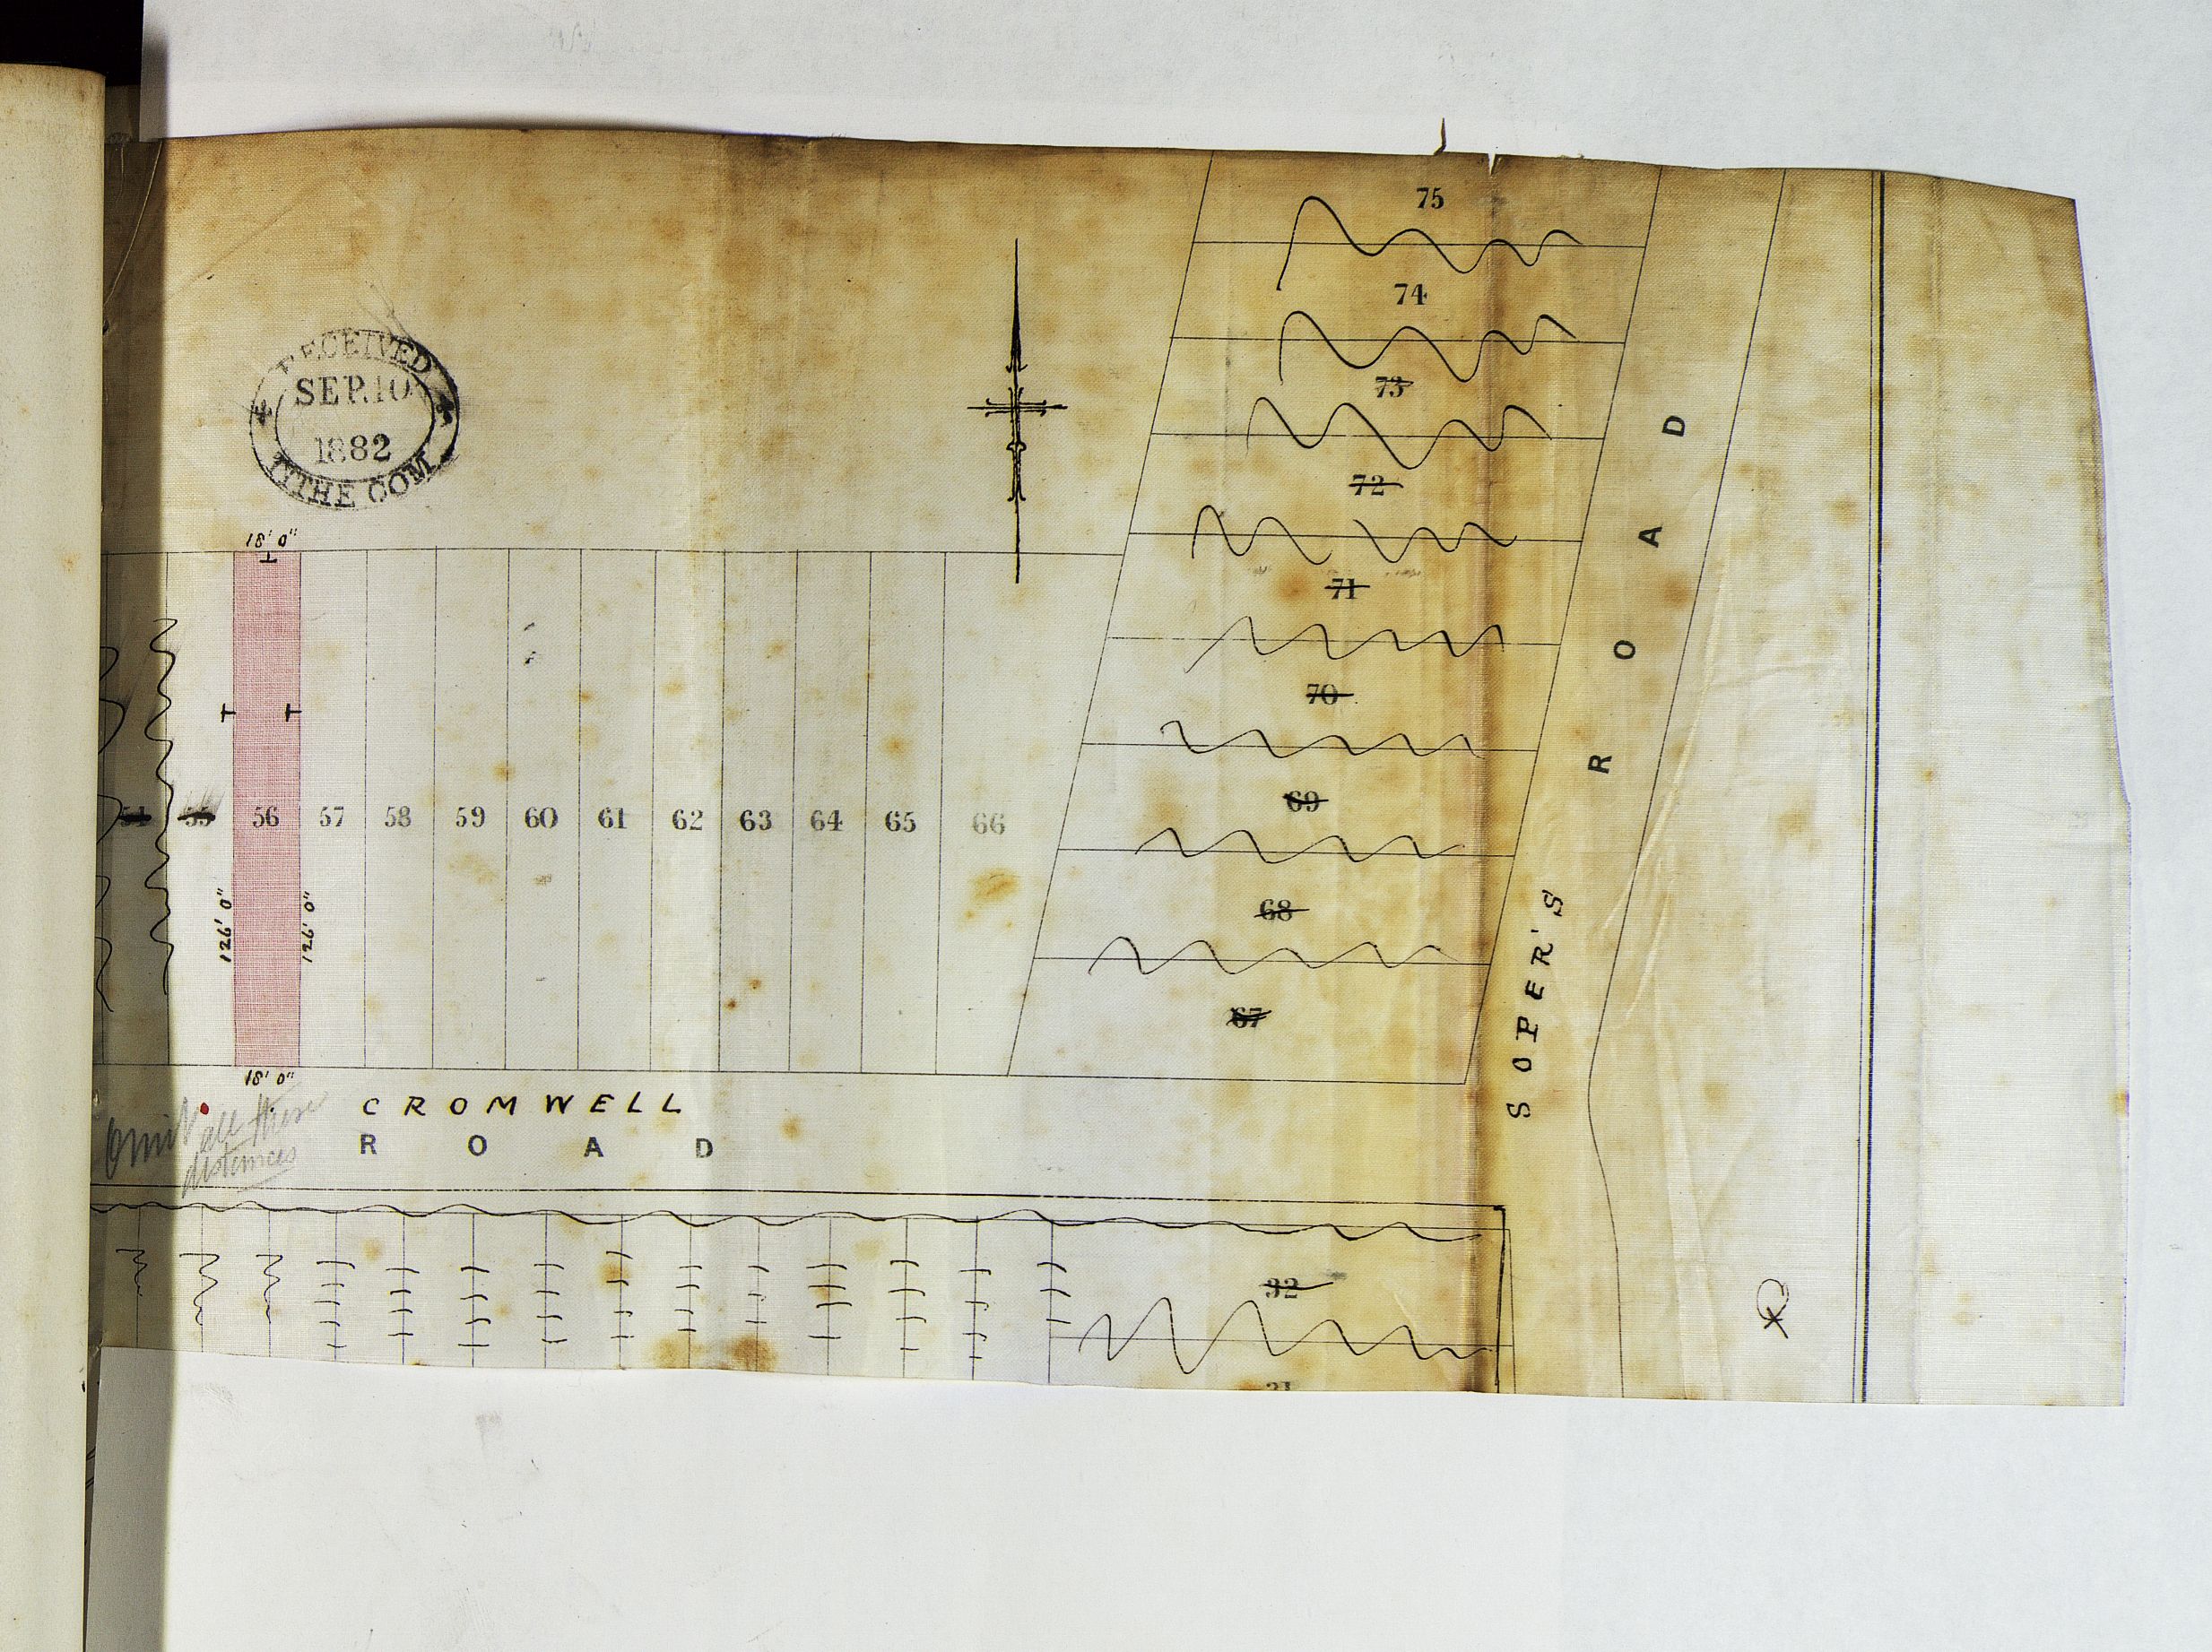 75
74
73
72
71
70
69
68
67
RECEIVED
SEP. 10
1882
THE COM
18' 0"
54 55 56 57 58 59 60 61 62 63 64 65 66
126' 0"
126' 0"
18' 0"
Omit all these
distances
CROMWELL
ROAD
SOPER'S ROAD
32
31